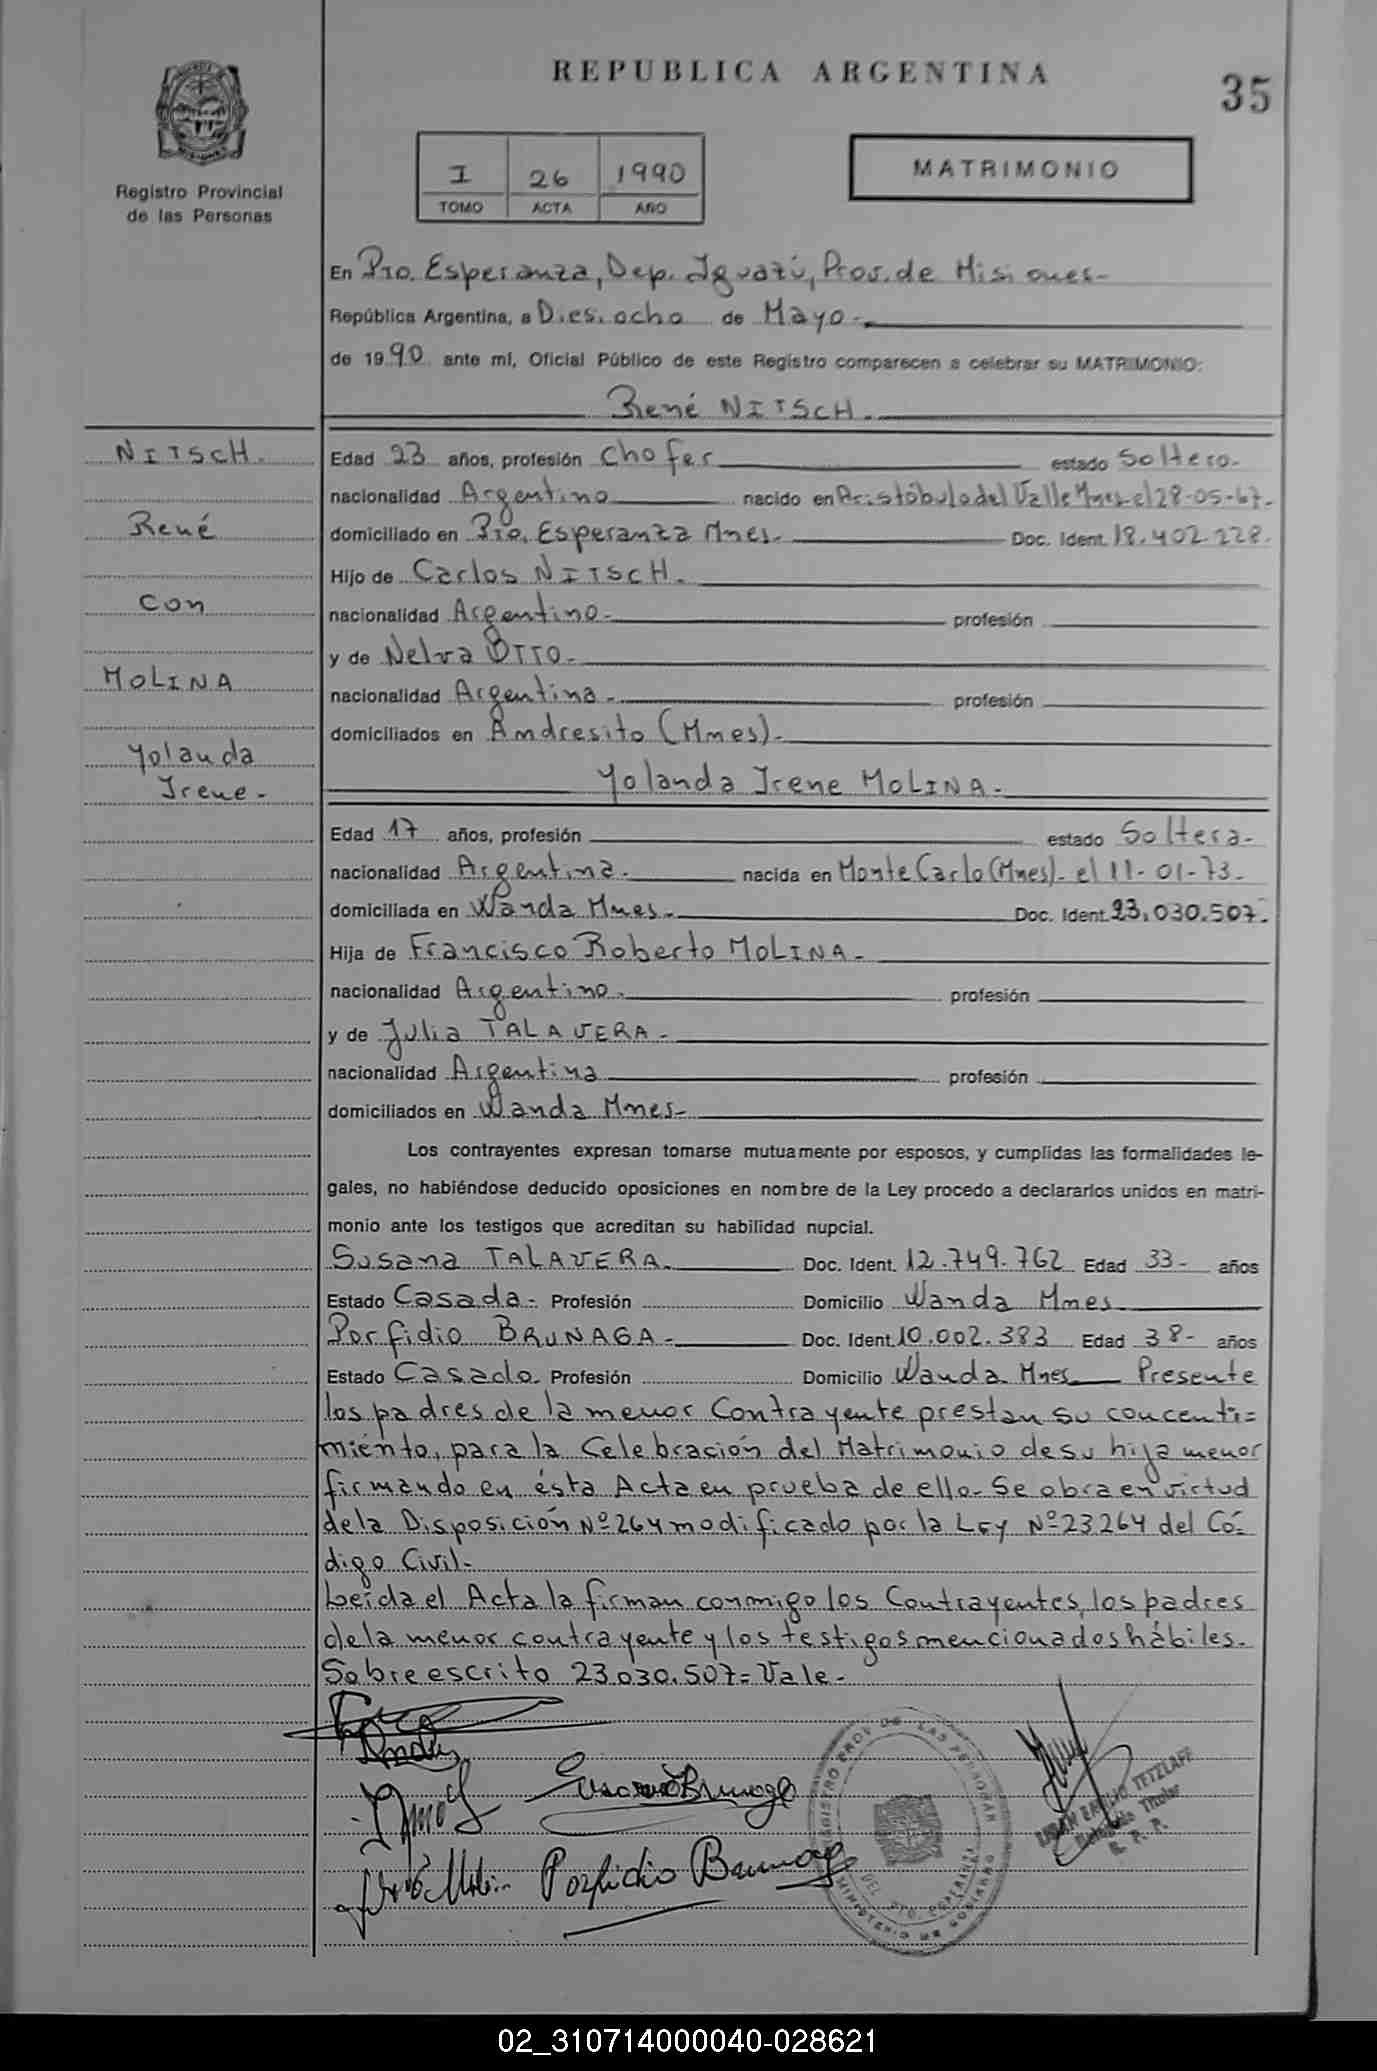 REPUBLICA ARGENTINA
35
I 26 1990
TOMO ACTA AÑO
MATRIMONIO
Registro Provincial
de las Personas
En Pto. Esperanza, Dep. Iguazú, Prov. de Misiones-
República Argentina, a Dies.ocho de Mayo.-
de 1990 ante mí, Oficial Público de este Registro comparecen a celebrar su MATRIMONIO:
René NITSCH.
NITSCH.
René
con
MOLINA
Yolanda
Irene-
Edad 23 años, profesión Chofer estado Soltero-
nacionalidad Argentino nacido en Aristóbulo del Valle Mnes el 28-05-67-
domiciliado en Pto. Esperanza Mnes. Doc. Ident. 18.402.228.
Hijo de Carlos NITSCH.
nacionalidad Argentino- profesión
y de Nelva OTTO-
nacionalidad Argentina- profesión
domiciliados en Andresito (Mnes).
Yolanda Irene MOLINA-
Edad 17 años, profesión estado Soltera-
nacionalidad Argentina- nacida en Monte Carlo (Mnes)- el 11-01-73-
domiciliada en Wanda Mnes- Doc. Ident. 23.030.507-
Hija de Francisco Roberto MOLINA-
nacionalidad Argentino- profesión
y de Julia TALAVERA-
nacionalidad Argentina profesión
domiciliados en Wanda Mnes-
Los contrayentes expresan tomarse mutuamente por esposos, y cumplidas las formalidades le-
gales, no habiéndose deducido oposiciones en nombre de la Ley procedo a declararlos unidos en matri-
monio ante los testigos que acreditan su habilidad nupcial.
Susana TALAVERA- Doc. Ident. 12.749.762 Edad 33- años
Estado Casada- Profesión Domicilio Wanda Mnes
Porfidio BRUNAGA- Doc. Ident. 10.002.383 Edad 38- años
Estado Casado. Profesión Domicilio Wanda Mnes Presente
los padres de la menor Contrayente prestan su concenti=
miento, para la Celebración del Matrimonio de su hija menor
firmando en ésta Acta en prueba de ello- Se obra en virtud
de la Disposición Nº 264 modificado por la Ley Nº 23264 del Có-
digo Civil-
Leída el Acta la firman conmigo los Contrayentes, los padres
de la menor contrayente y los testigos mencionados hábiles-
Sobreescrito 23.030.507= Vale-
Porfidio Brunaga
REGISTRO PROV. DE LAS PERSONAS
PTO. ESPERANZA
MINISTERIO DE GOBIERNO
TETZLAFF
Titular
R. P. P.
02_310714000040-028621